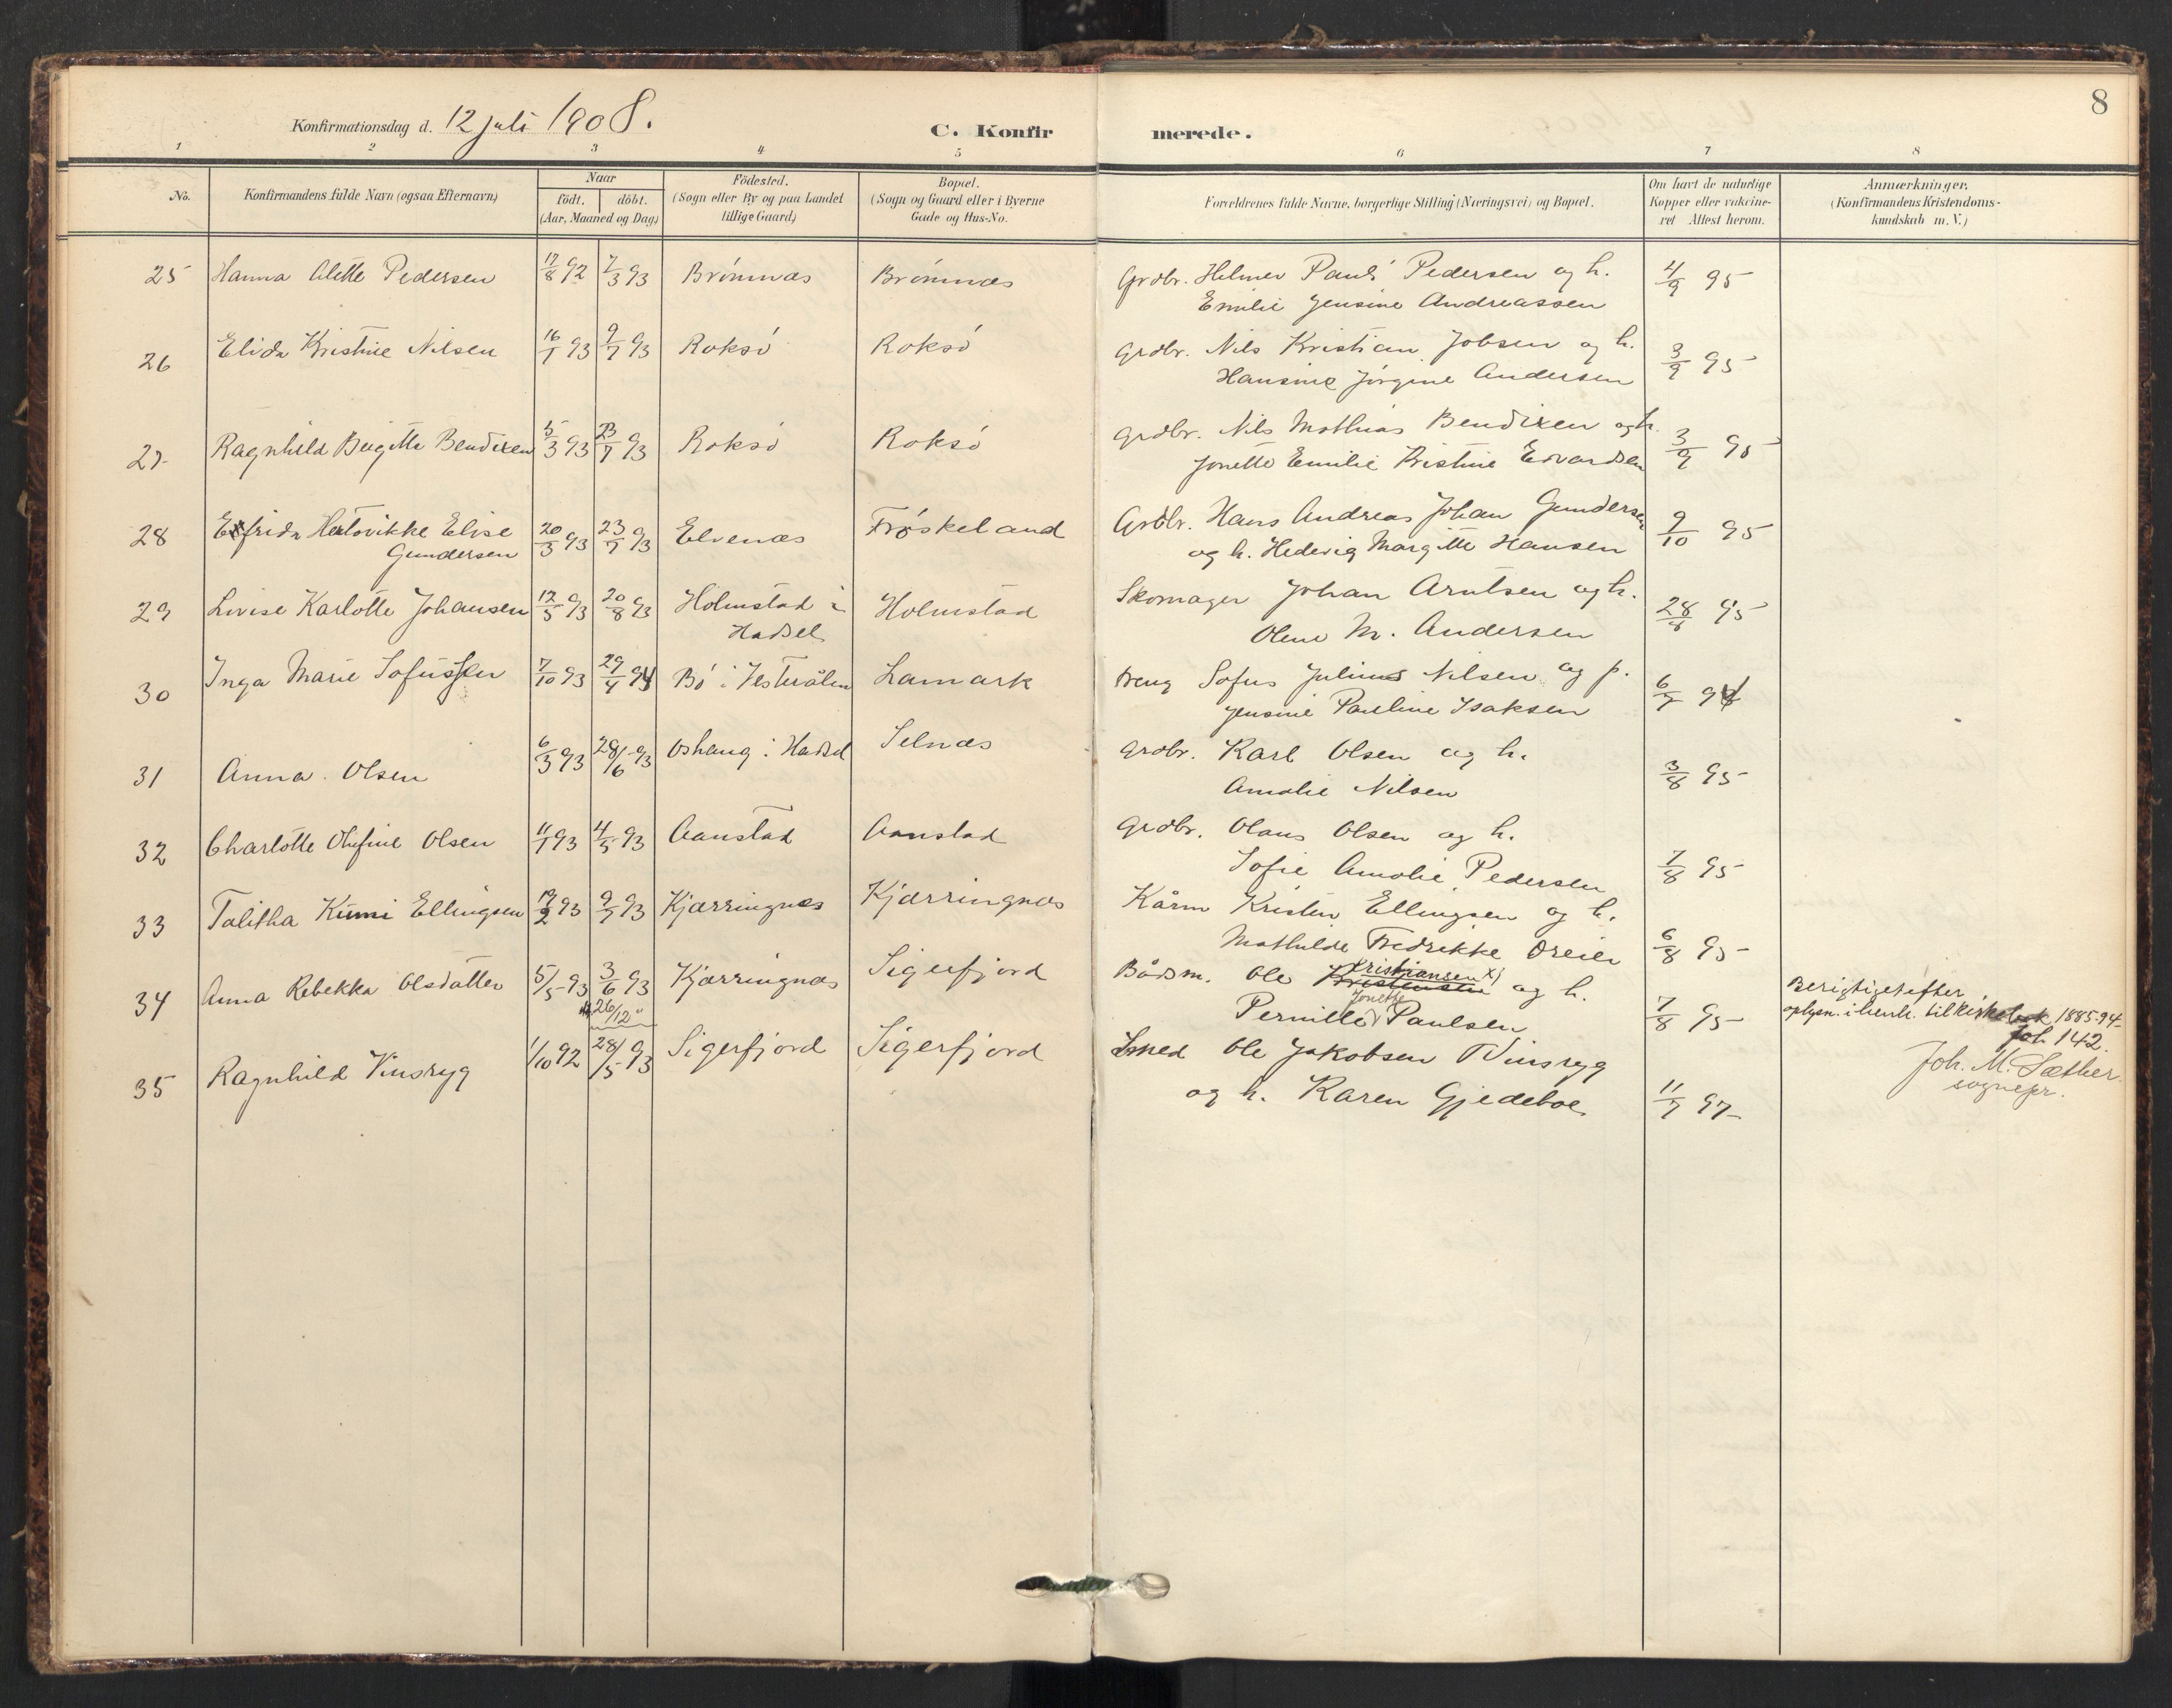 8
Konfirmationsdag d. 12 juli 1908.
C. Konfir merede.
1 2 3 4 5 6 7 8
No.
Konfirmandens fulde Navn (ogsaa Efternavn)
Naar
födt. döbt.
(Aar, Maaned og Dag)
Födested.
(Sogn eller By og paa Landet
tillige Gaard)
Bopæl.
(Sogn og Gaard eller i Byerne
Gade og Hus-No.
Forældrenes fulde Navne, borgerlige Stilling (Næringsvei) og Bopæl.
Om havt de naturlige
Kopper eller vakcine-
ret Attest herom.
Anmærkninger.
(Konfirmandens Kristendoms-
kundskab m. V.)
25 Hanna Alette Pedersen 17/8 92 7/3 93 Brómnæs Brómnæs Grdbr. Hilmer Pauli Pedersen og h. 4/9 95
Emilie Jensine Andreassen
26 Elida Kristine Nilsen 16/1 93 9/7 93 Roksó Roksó Grdbr. Nils Kristian Jobsen og h. 3/9 95
Hansine Jórgine Andersen
27 Ragnhild Birgitte Bendixen 5/3 93 23/7 93 Roksó Roksó Grdbr. Nils Mathias Bendixen og h. 3/9 95
Jonette Emilie Kristine Edvardsen
28 Elfrida Hartvikke Elise 20/3 93 23/7 93 Elvenæs Fróskeland Grdbr. Hans Andreas Johan Gundersen 9/10 95
Gundersen og h. Hedevig Margitte Hansen
29 Lovise Karlotte Johansen 12/5 93 20/8 93 Holmstad i Holmstad Skomager Johan Arntsen og h. 28/8 95
Hadsel Oline M. Andersen
30 Inga Marie Sofussen 7/10 93 29/4 94 Bó i Vesterålen Lamark Dreng Sofus Julius Nilsen og p. 6/7 94
Jensine Pauline Isaksen
31 Anna Olsen 6/3 93 28/6 93 Oshaug i Hadsel Selnæs Grdbr. Karl Olsen og h. 3/8 95
Amalie Nilsen
32 Charlotte Olufine Olsen 11/1 93 4/5 93 Aanstad Aanstad Grdbr. Olaus Olsen og h. 7/8 95
Sofie Amalie Pedersen
33 Talitha Kumi Ellingsen 19/2 93 9/7 93 Kjærringnes Kjærringnes Kårm Kristen Ellingsen og h. 6/8 95
Mathilde Fredrikke Dreier
34 Anna Rebekka Olsdatter 5/5 93 3/6 93 Kjærringnæs Sigerfjord Bådsm. Ole Kristensen Kristiansen x) og h. 7/8 95
26/12 Pernille Jonette Paulsen
Berigtiget efter
oplysn. i henh. til Kirkebok 1885-94
fol. 142.
Joh. M. Sæther
sognepr.
35 Ragnhild Vinsryg 1/10 92 28/5 93 Sigerfjord Sigerfjord Smed Ole Jakobsen Vinsryg 11/7 97
og h. Karen Gjedeboe